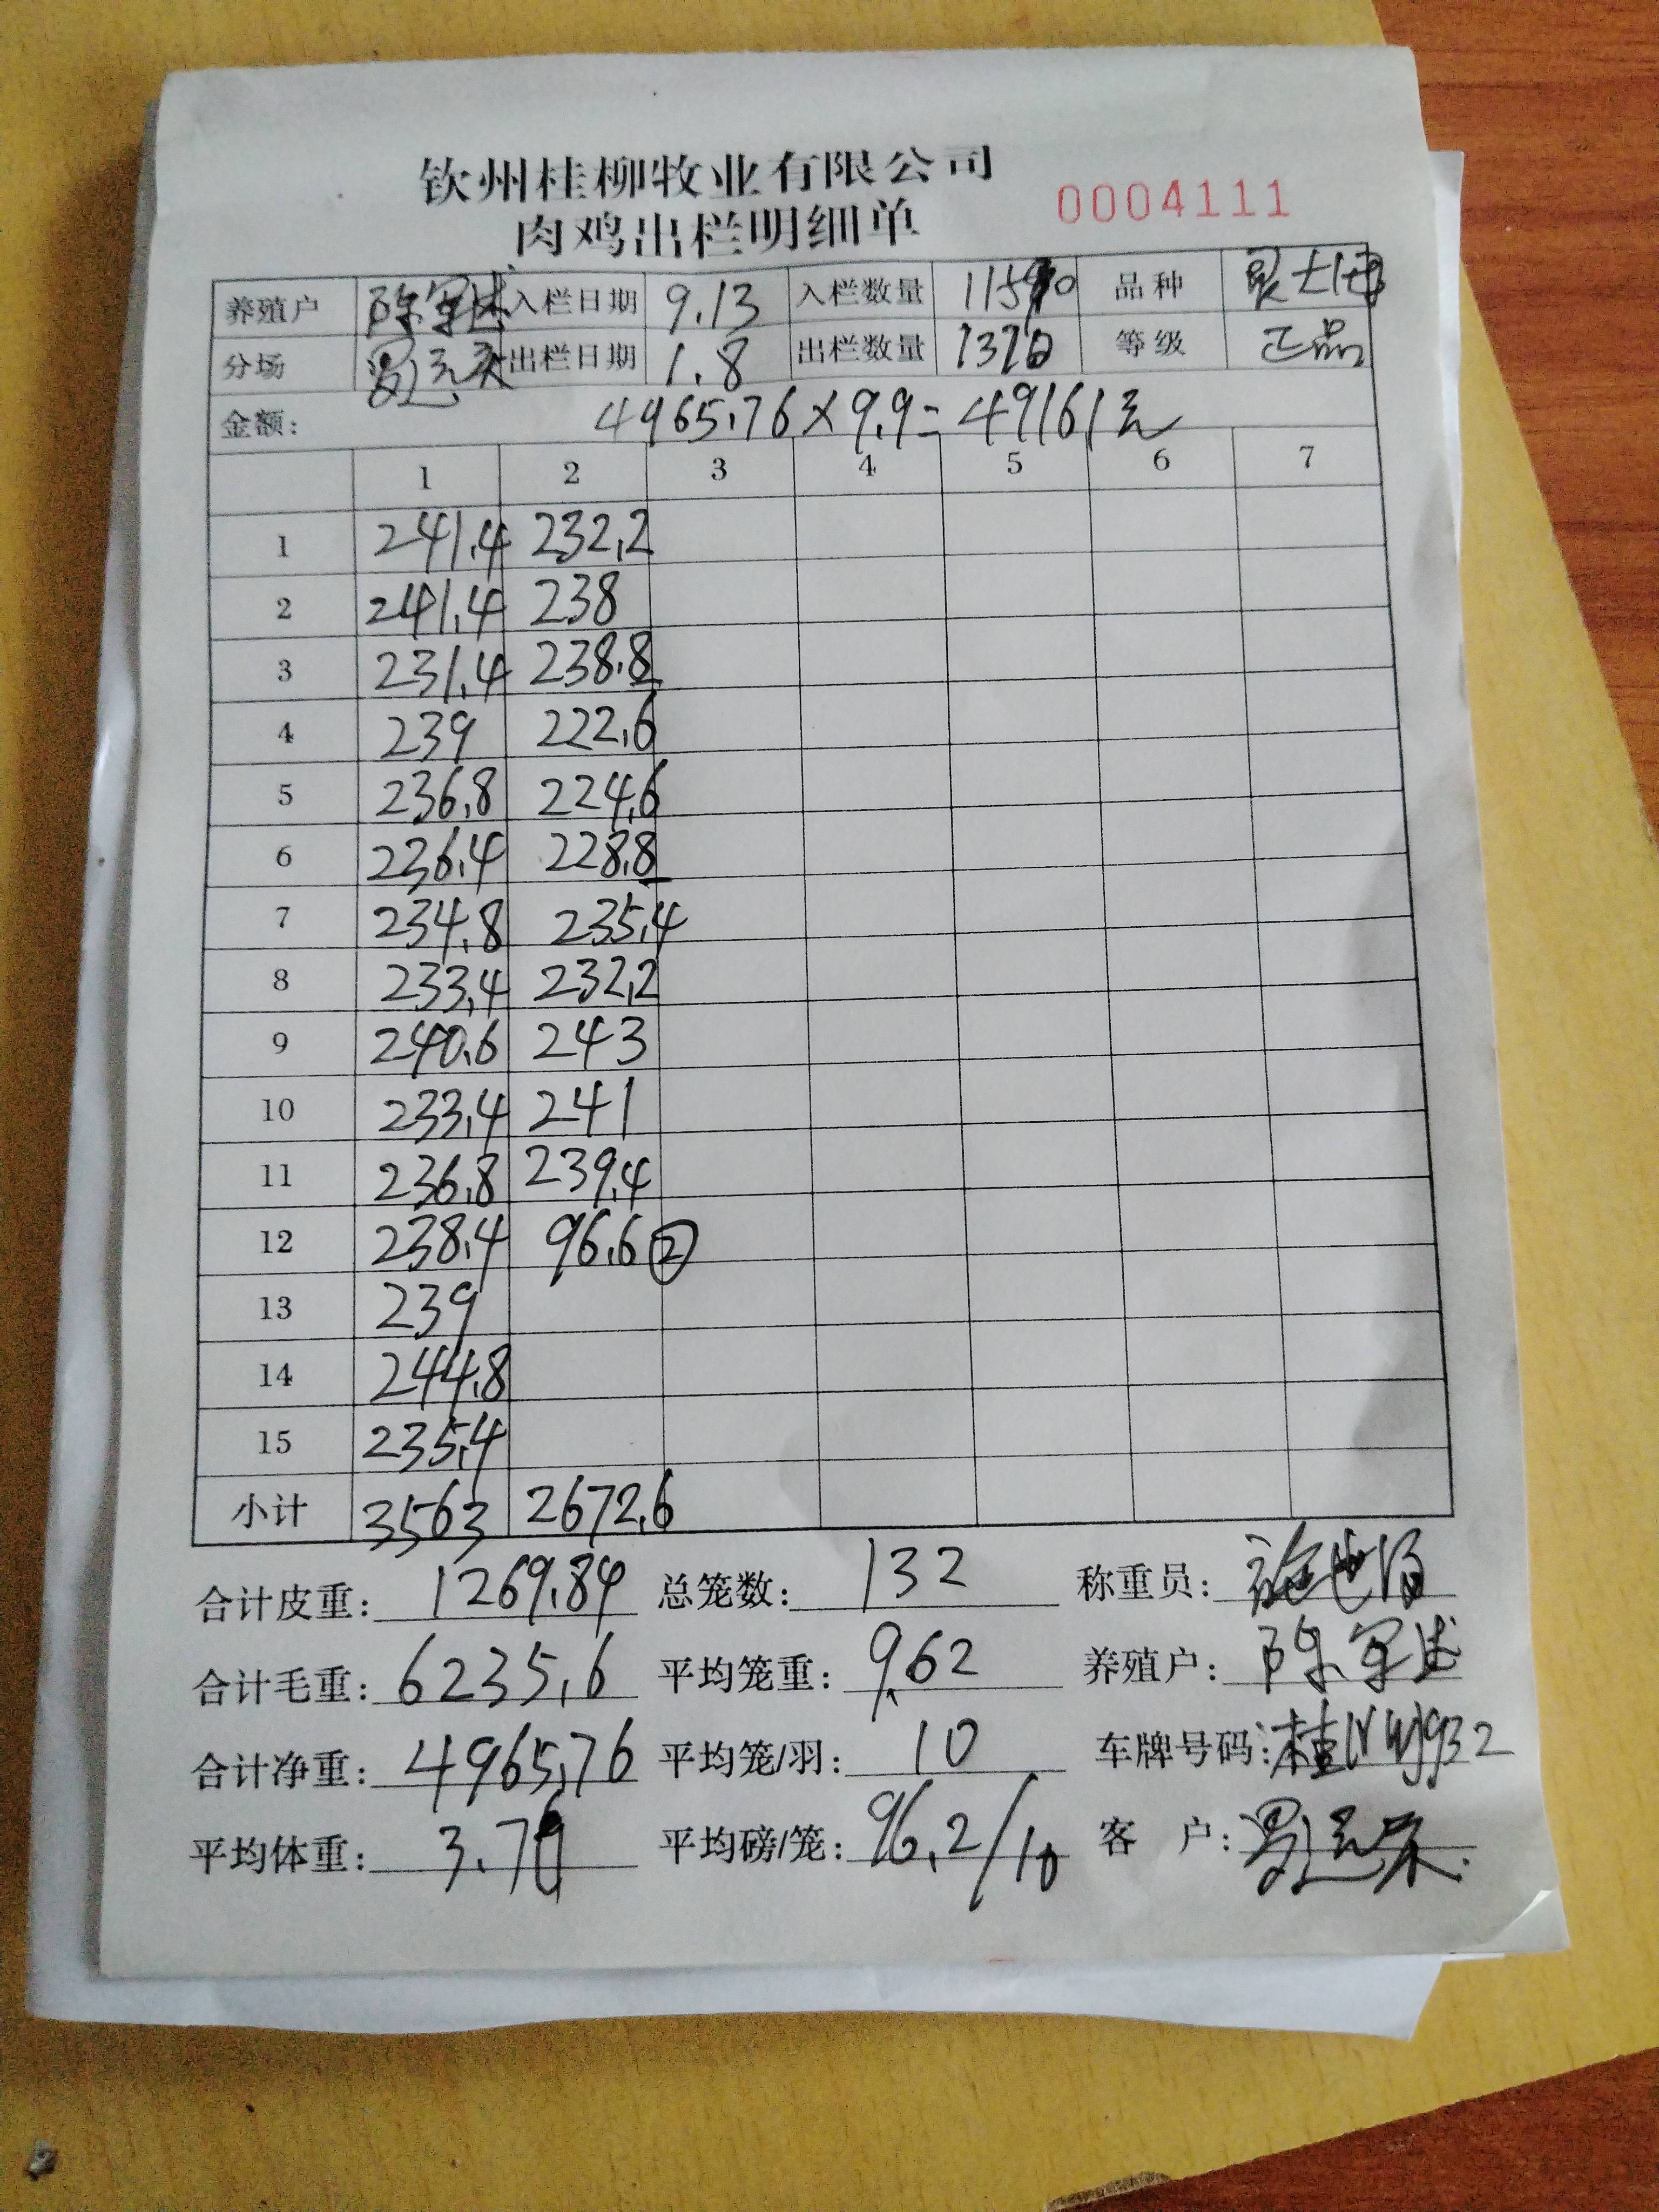 钦州桂柳牧业有限公司
肉鸡出栏明细单 0004111
养殖户 入栏日期 9.13 入栏数量 品种
分场 出栏日期 1.8 出栏数量 等级 正品
金额: 4965.76×9.9=49161元
1 2 3 4 5 6 7
1 241.4 232.2
2 241.4 238
3 231.4 238.8
4 239 222.6
5 236.8 224.6
6 236.4 228.8
7 234.8 235.4
8 233.4 232.2
9 240.6 243
10 233.4 241
11 236.8 239.4
12 238.4 96.6 ②
13 239
14 244.8
15 235.4
小计 3563 2672.6
合计皮重: 1269.84 总笼数: 132 称重员:
合计毛重: 6235.6 平均笼重: 9.62 养殖户:
合计净重: 4965.76 平均笼/羽: 10 车牌号码:
平均体重: 3.76 平均磅/笼: 96.2/10 客户: